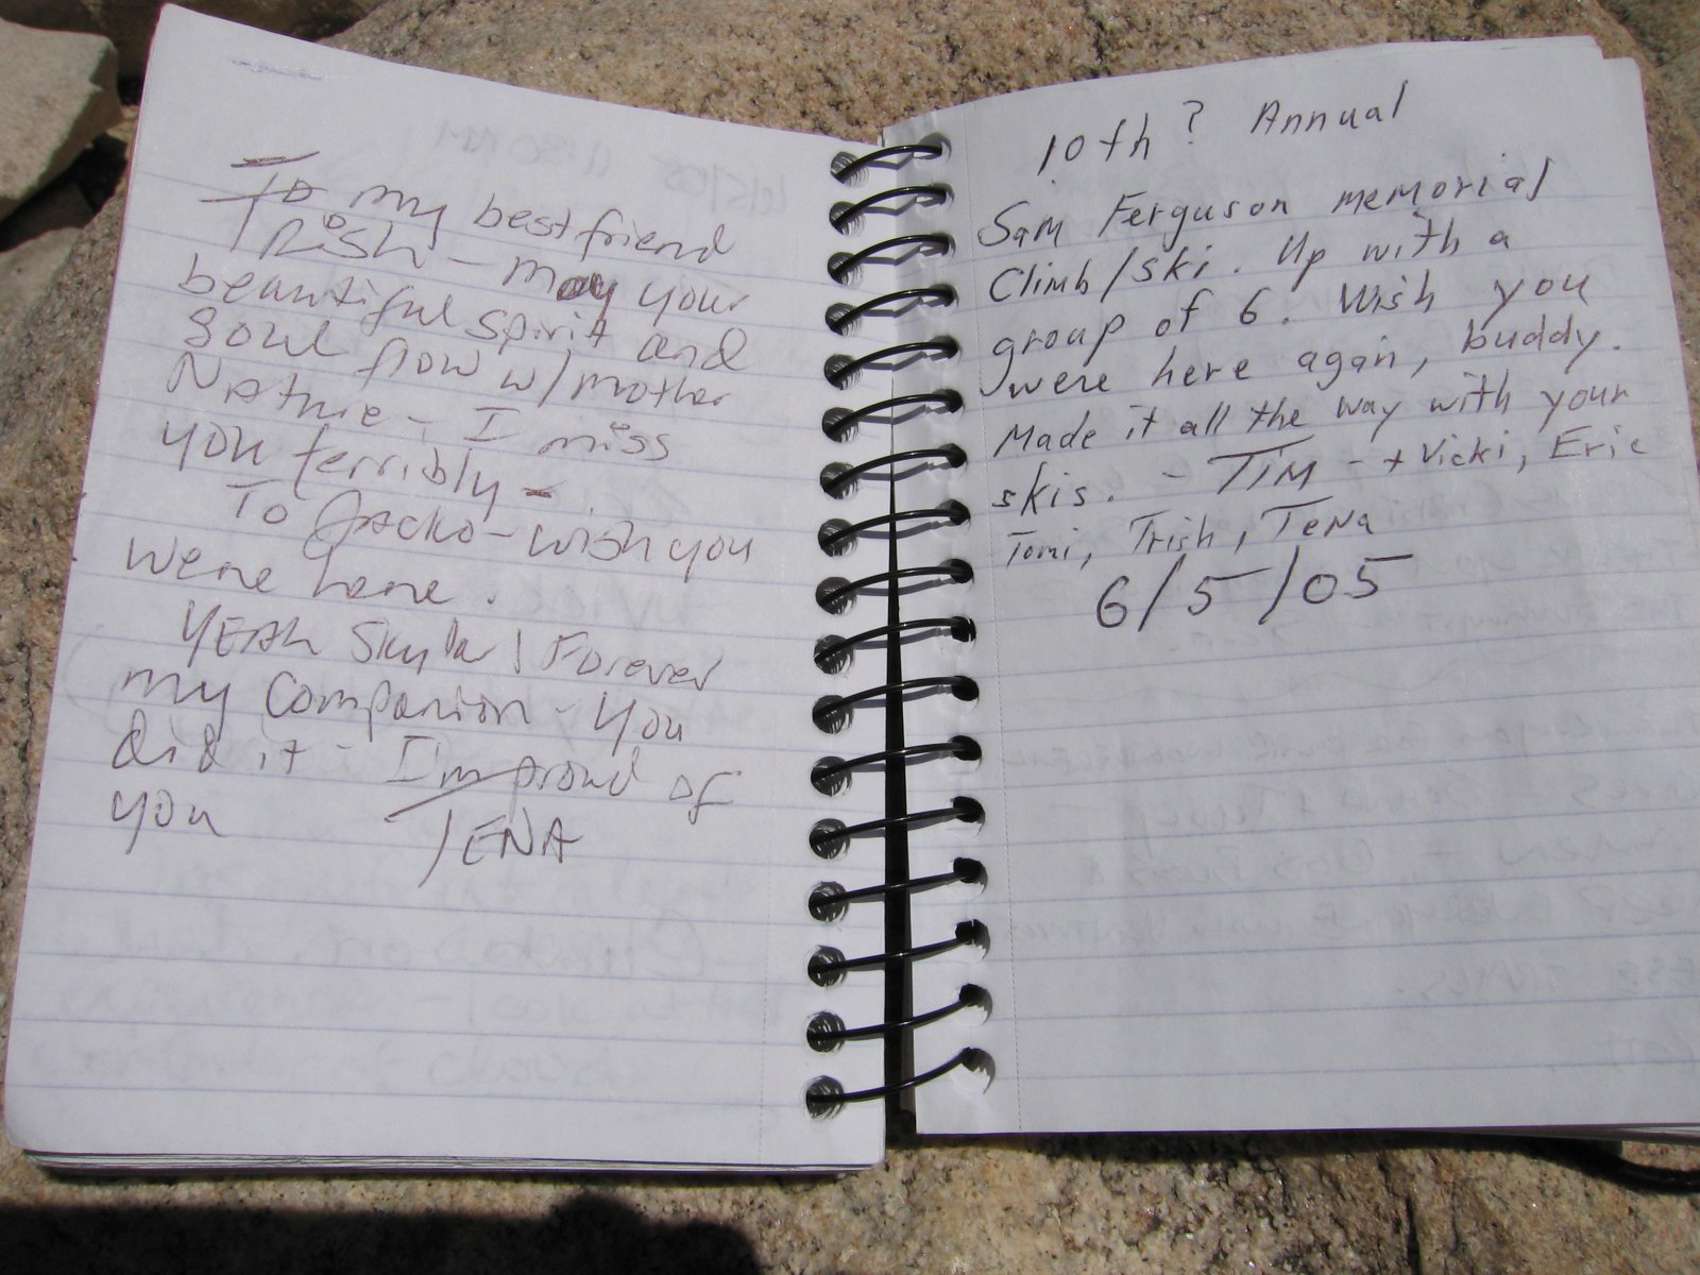 To my best friend
Trish - may your
beautiful spirit and
soul flow w/mother
Nature - I miss
you terribly -
To Jacko - wish you
were here.
YEAH Skylar! Forever
my companion - you
did it - I'm proud of
you TENA
10th? Annual
Sam Ferguson memorial
Climb/ski. Up with a
group of 6. Wish you
were here again, buddy.
Made it all the way with your
skis. - TIM - + Vicki, Eric
Tomi, Trish, TeNa
6/5/05